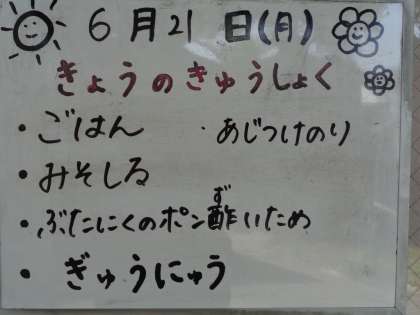 6月21日(月)
きょうのきゅうしょく
・ごはん ・あじつけのり
・みそしる
・ぶたにくのポン酢いため
ず
・ぎゅうにゅう